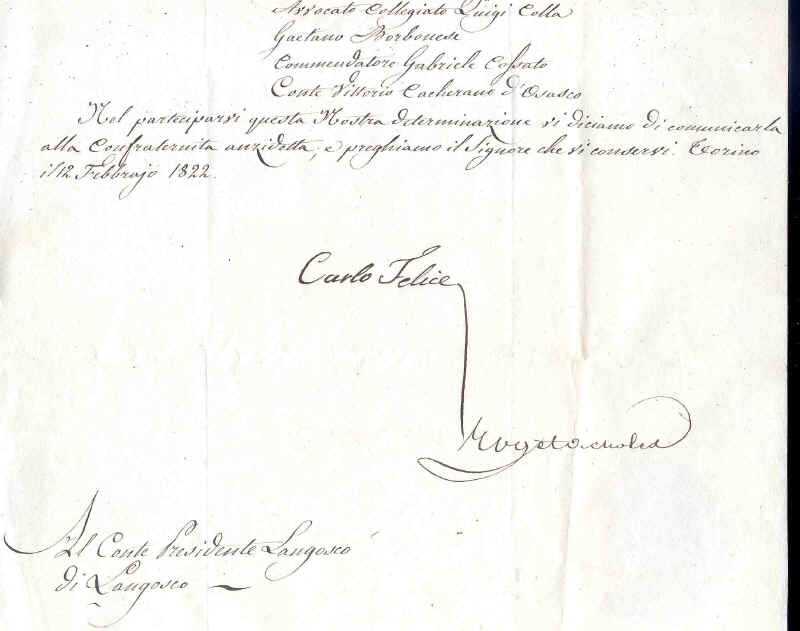 Avvocato Collegiato Luigi Colla
Gaetano Borbonese
Commendatore Gabriele Cossato
Conte Vittorio Cacherano d'Osasco
Nel parteciparvi questa Nostra determinazione vi diciamo di comunicarla
alla Confraternita anzidetta; e preghiamo il Signore che vi conservi. Torino
il 12 Febbrajo 1822.
Carlo Felice
Al Conte Presidente Langosco
di Langosco